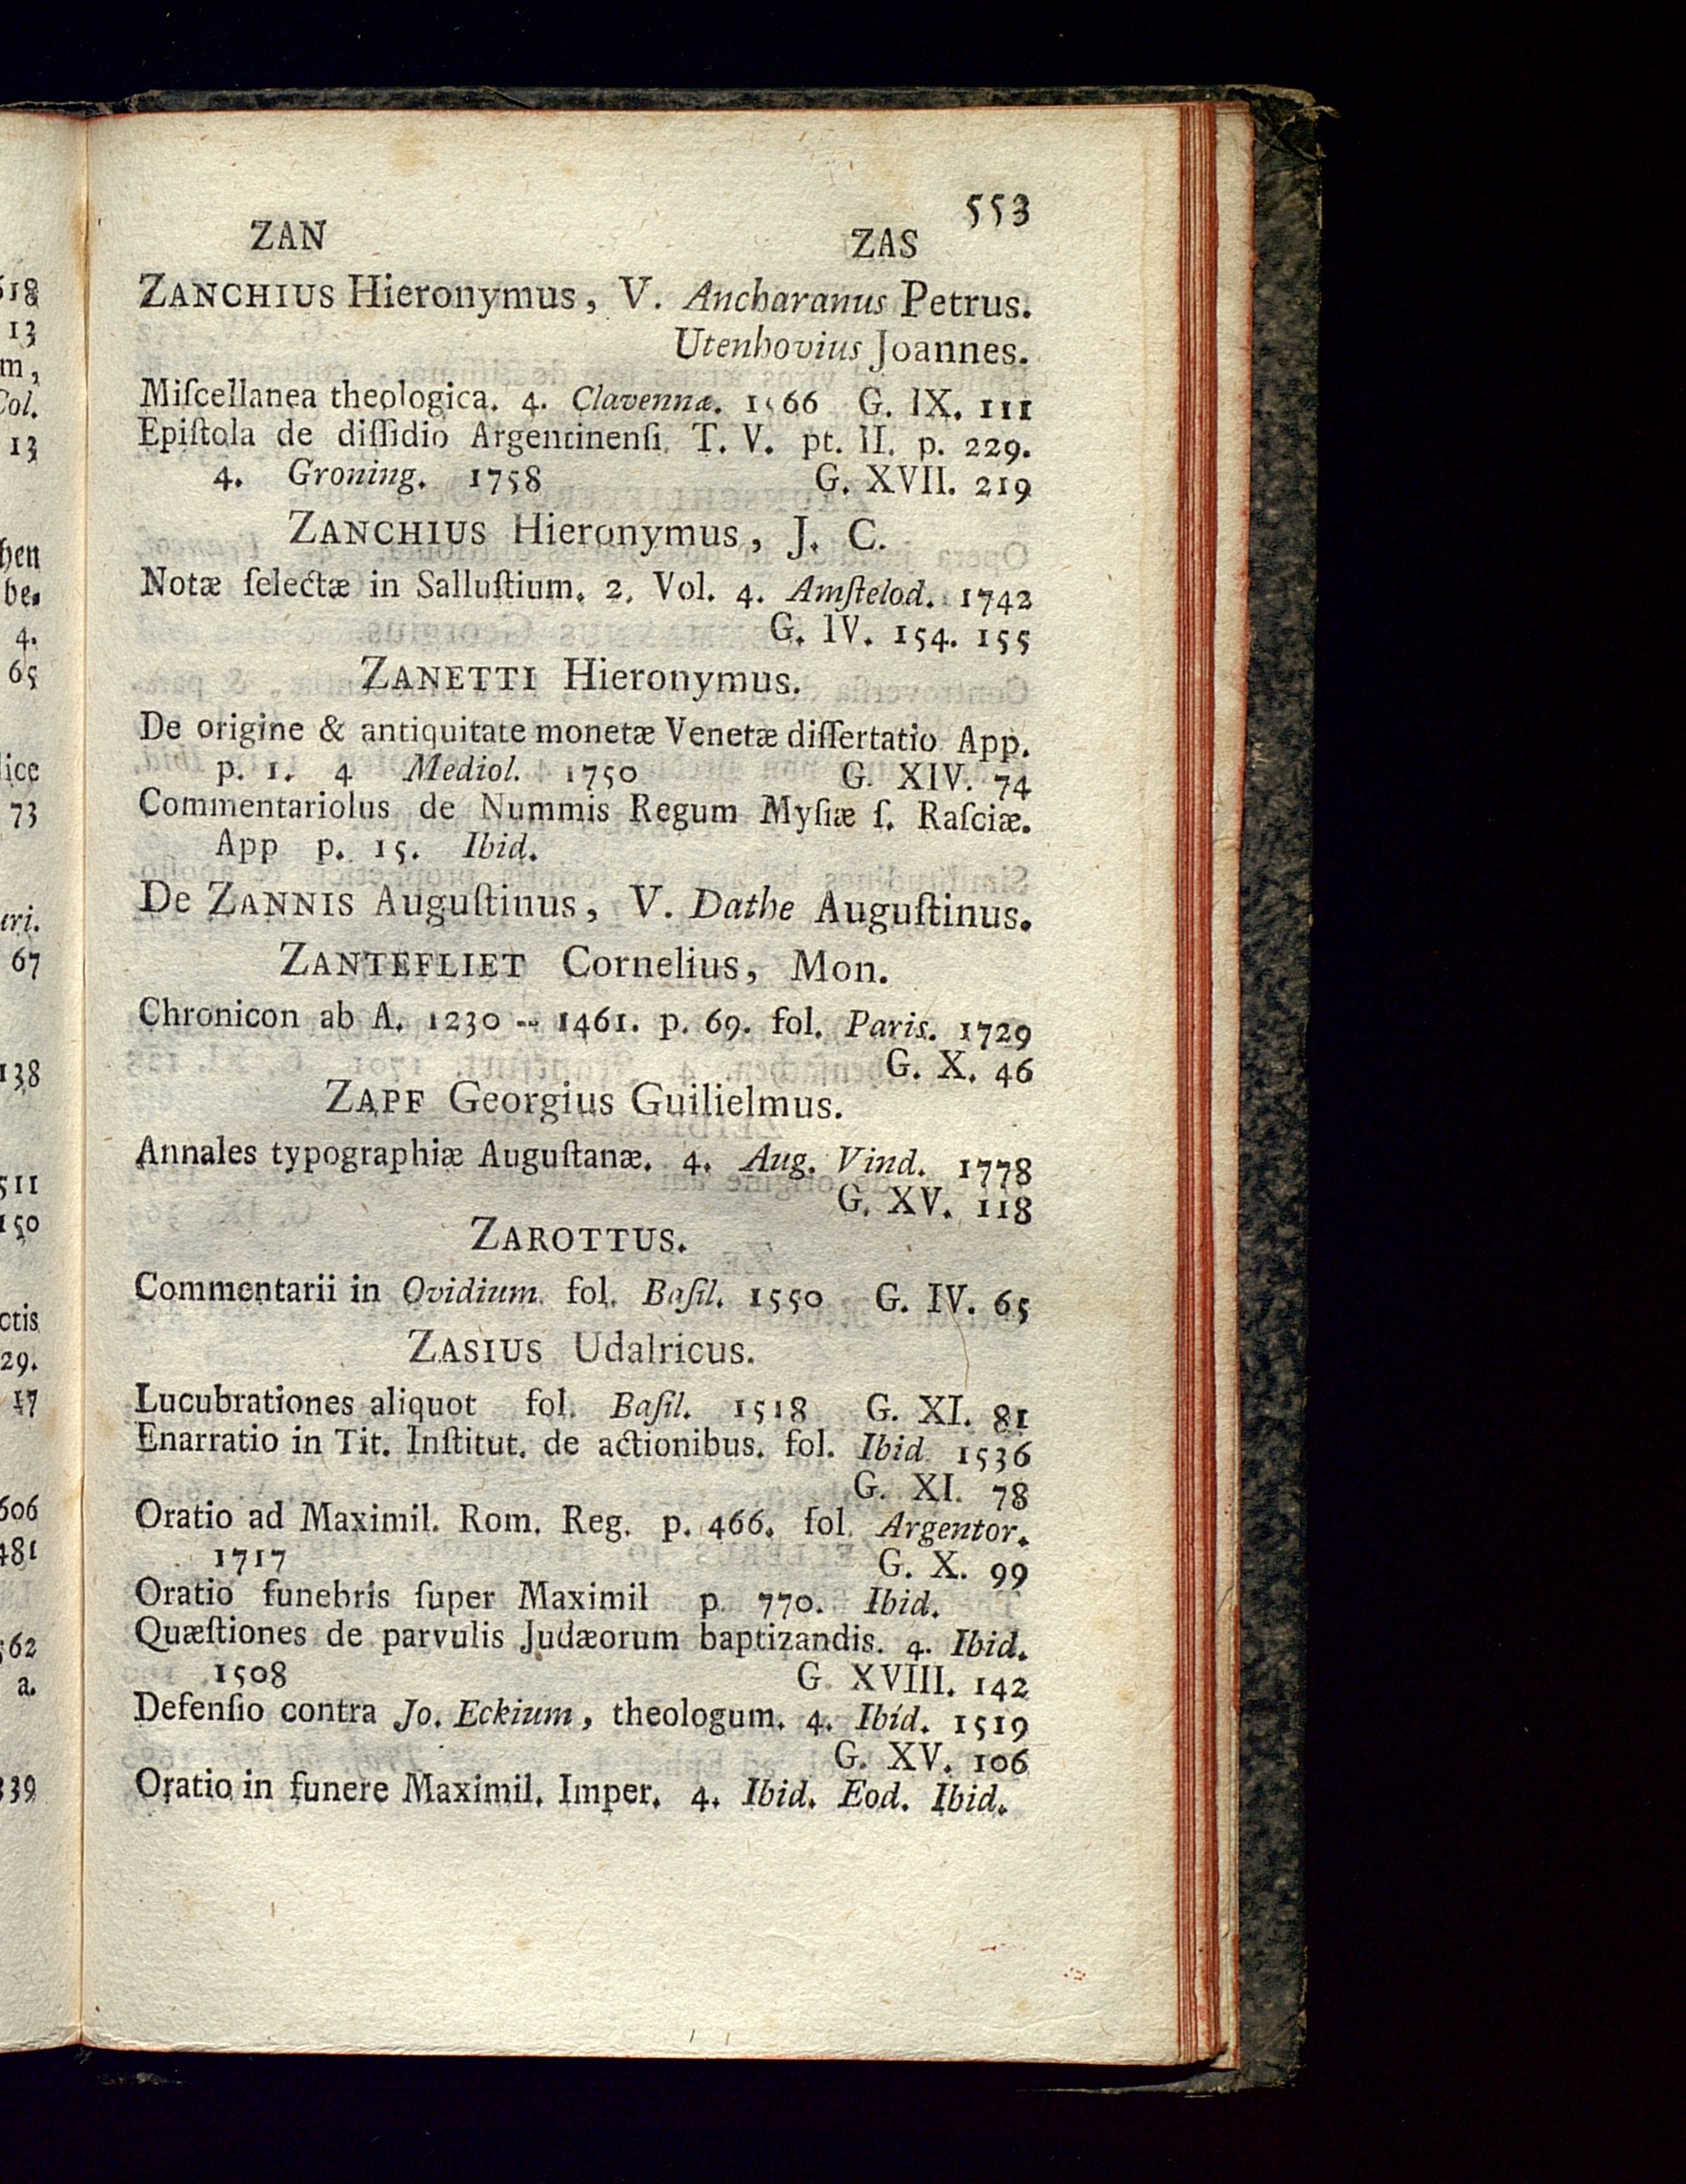 553
ZAN ZAS
ZANCHIUS Hieronymus, V. Ancharanus Petrus.
Utenhovius Joannes.
Miſcellanea theologica. 4. Clavennæ. 1566 G. IX. 111
Epiſtola de diſſidio Argentinenſi. T. V. pt. II. p. 229.
4. Groning. 1758 G. XVII. 219
ZANCHIUS Hieronymus, J. C.
Notæ ſelectæ in Salluſtium. 2. Vol. 4. Amſtelod. 1742
G. IV. 154. 155
ZANETTI Hieronymus.
De origine & antiquitate monetæ Venetæ diſſertatio App.
p. 1. 4 Mediol. 1750 G. XIV. 74
Commentariolus de Nummis Regum Myſiæ ſ. Raſciæ.
App p. 15. Ibid.
De ZANNIS Auguſtinus, V. Dathe Auguſtinus.
ZANTEFLIET Cornelius, Mon.
Chronicon ab A. 1230 -- 1461. p. 69. fol. Paris. 1729
G. X. 46
ZAPF Georgius Guilielmus.
Annales typographiæ Auguſtanæ. 4. Aug. Vind. 1778
G. XV. 118
ZAROTTUS.
Commentarii in Ovidium. fol. Baſil. 1550 G. IV. 65
ZASIUS Udalricus.
Lucubrationes aliquot fol. Baſil. 1518 G. XI. 81
Enarratio in Tit. Inſtitut. de actionibus. fol. Ibid. 1536
G. XI. 78
Oratio ad Maximil. Rom. Reg. p. 466. fol. Argentor.
1717 G. X. 99
Oratio funebris ſuper Maximil p. 770. Ibid.
Quæſtiones de parvulis Judæorum baptizandis. 4. Ibid.
1508 G XVIII. 142
Defenſio contra Jo. Eckium, theologum. 4. Ibid. 1519
G. XV. 106
Oratio in funere Maximil. Imper. 4. Ibid. Eod. Ibid.